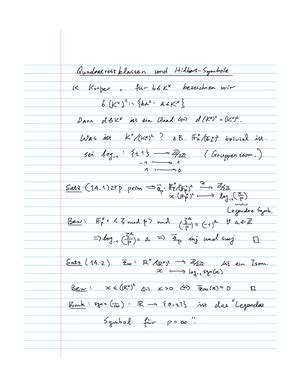 Quadratrestklassen und Hilbert-Symbole
K Körper, für b∈K^x bezeichnen wir
b(K^x)² := {ba² : a∈K^x}
Dann d∈K^x ist ein Quad. ⟺ d(K^x)² = (K^x)².
Was ist K^x/(K^x)² ? z.B. trivial ist.
sei log₋₁ : {±1} → ℤ/2ℤ (Gruppenisom.)
-1 ↦ 1
1 ↦ 0
Satz (14.1) 2≠p prim ⟹ → ℤ/2ℤ
x ↦ log₋₁(x/p)
Legendre Symb.
Bew: = <ζ mod p> und (ζ^a/p) = (-1)^a ∀ a∈ℤ
⟹ log₋₁(ζ^a/p) = a ⟹ surj und inj □
Satz (14.2) : ℝ^x/(ℝ^x)² → ℤ/2ℤ ist ein Isom.
x ↦ log₋₁ sgn(x)
Bew: x∈(ℝ^x)² ⟺ x>0 ⟺ (x) = 0 □
Bemk: sgn = : ℝ → {0,±1} ist das "Legendre
Symbol für p=∞".